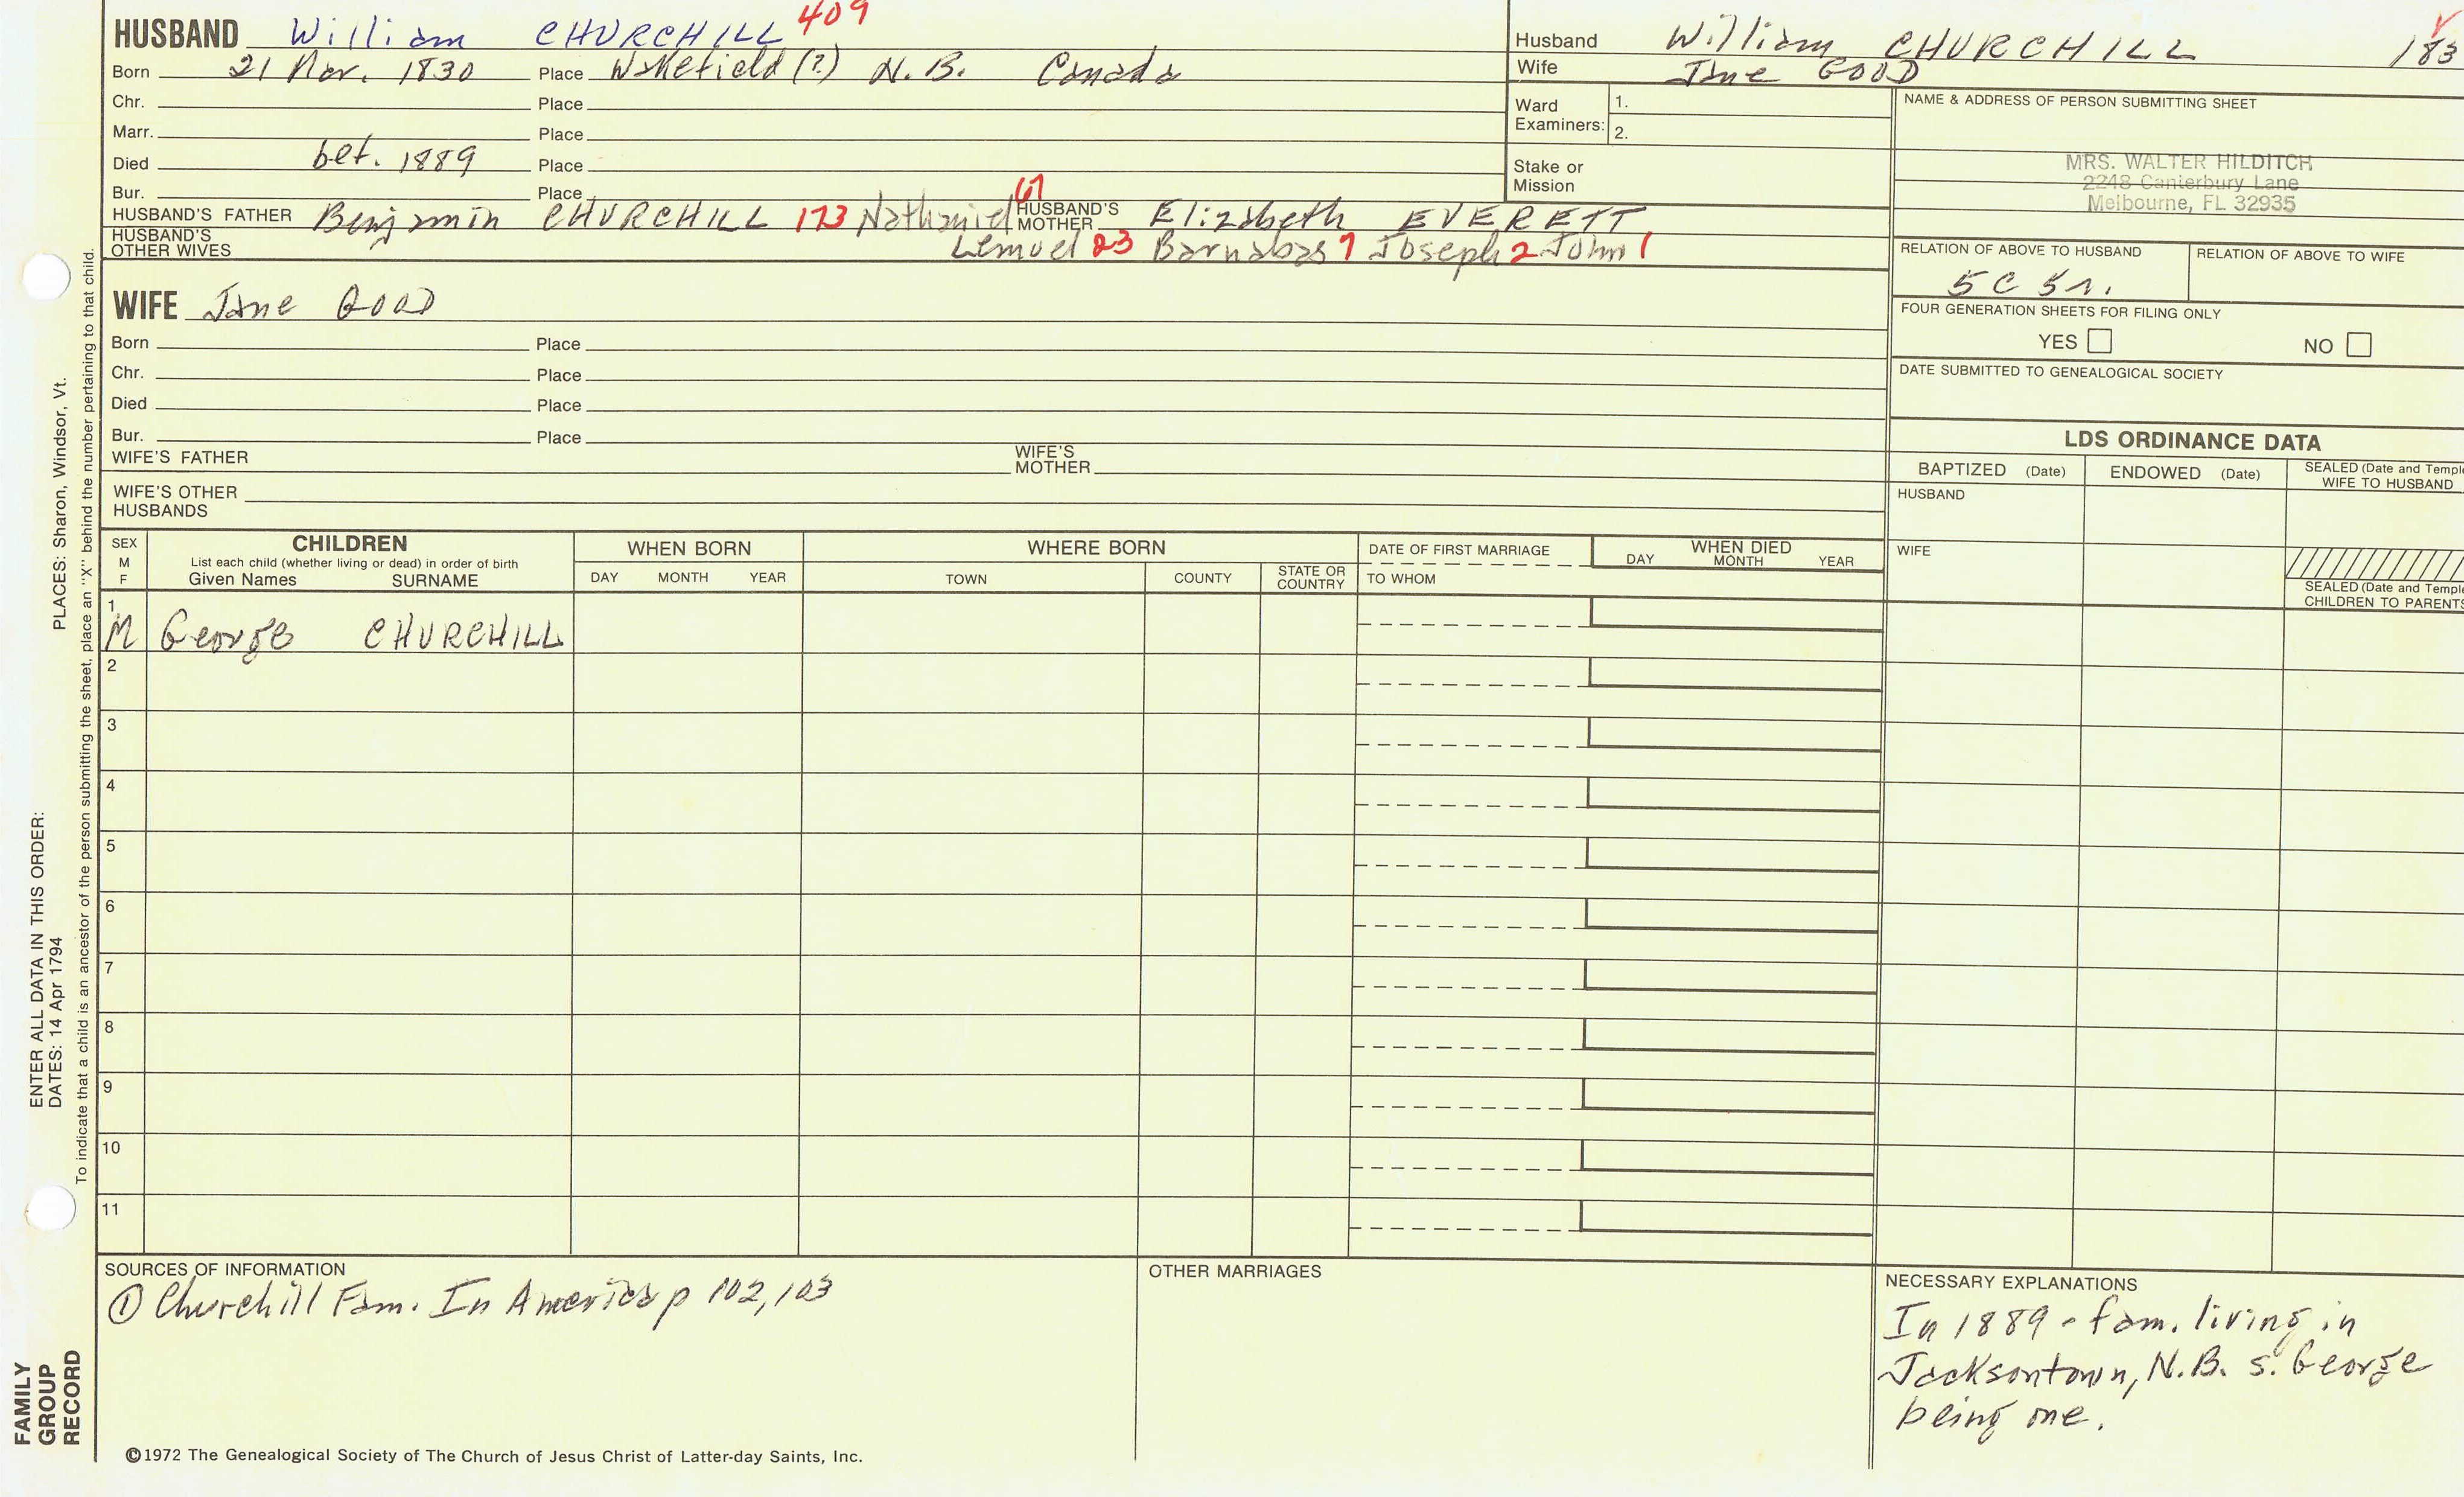 HUSBAND William CHURCHILL 409
Born 21 Nov. 1830 Place Wakefield (?) N.B. Canada
Chr. Place
Marr. Place
Died bef. 1889 Place
Bur. Place
HUSBAND'S FATHER Benjamin CHURCHILL 173 Nathaniel 61 HUSBAND'S MOTHER Elizabeth EVERETT
HUSBAND'S OTHER WIVES Lemuel 23 Barnabas 7 Joseph 2 John 1
WIFE Jane GOOD
Born Place
Chr. Place
Died Place
Bur. Place
WIFE'S FATHER WIFE'S MOTHER
WIFE'S OTHER HUSBANDS
Husband William CHURCHILL 183
Wife Jane GOOD
Ward Examiners: 1.
2.
Stake or Mission
NAME & ADDRESS OF PERSON SUBMITTING SHEET
MRS. WALTER HILDITCH
2248 Canterbury Lane
Melbourne, FL 32935
RELATION OF ABOVE TO HUSBAND RELATION OF ABOVE TO WIFE
5C 5r.
FOUR GENERATION SHEETS FOR FILING ONLY
YES NO
DATE SUBMITTED TO GENEALOGICAL SOCIETY
LDS ORDINANCE DATA
BAPTIZED (Date) ENDOWED (Date) SEALED (Date and Temple
WIFE TO HUSBAND
HUSBAND
WIFE
SEALED (Date and Temple
CHILDREN TO PARENTS
SEX M F
CHILDREN
List each child (whether living or dead) in order of birth
Given Names SURNAME
WHEN BORN
DAY MONTH YEAR
WHERE BORN
TOWN COUNTY STATE OR COUNTRY
DATE OF FIRST MARRIAGE
TO WHOM
WHEN DIED
DAY MONTH YEAR
1
M George CHURCHILL
2
3
4
5
6
7
8
9
10
11
SOURCES OF INFORMATION
① Churchill Fam. In America p 102,103
OTHER MARRIAGES
NECESSARY EXPLANATIONS
In 1889 - fam. living in
Jacksontown, N.B. s. George
being one.
©1972 The Genealogical Society of The Church of Jesus Christ of Latter-day Saints, Inc.
FAMILY
GROUP
RECORD
ENTER ALL DATA IN THIS ORDER:
DATES: 14 Apr 1794 PLACES: Sharon, Windsor, Vt.
To indicate that a child is an ancestor of the person submitting the sheet, place an "X" behind the number pertaining to that child.